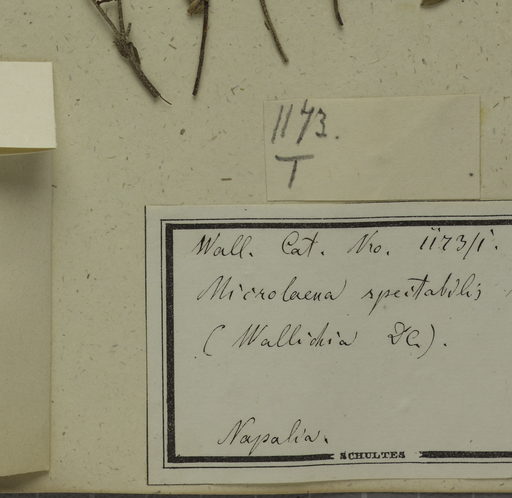 1173.
T
Wall. Cat. No. 1173/1.
Microlaena spectabilis
(Wallichia DC).
Napalia.
SCHULTES